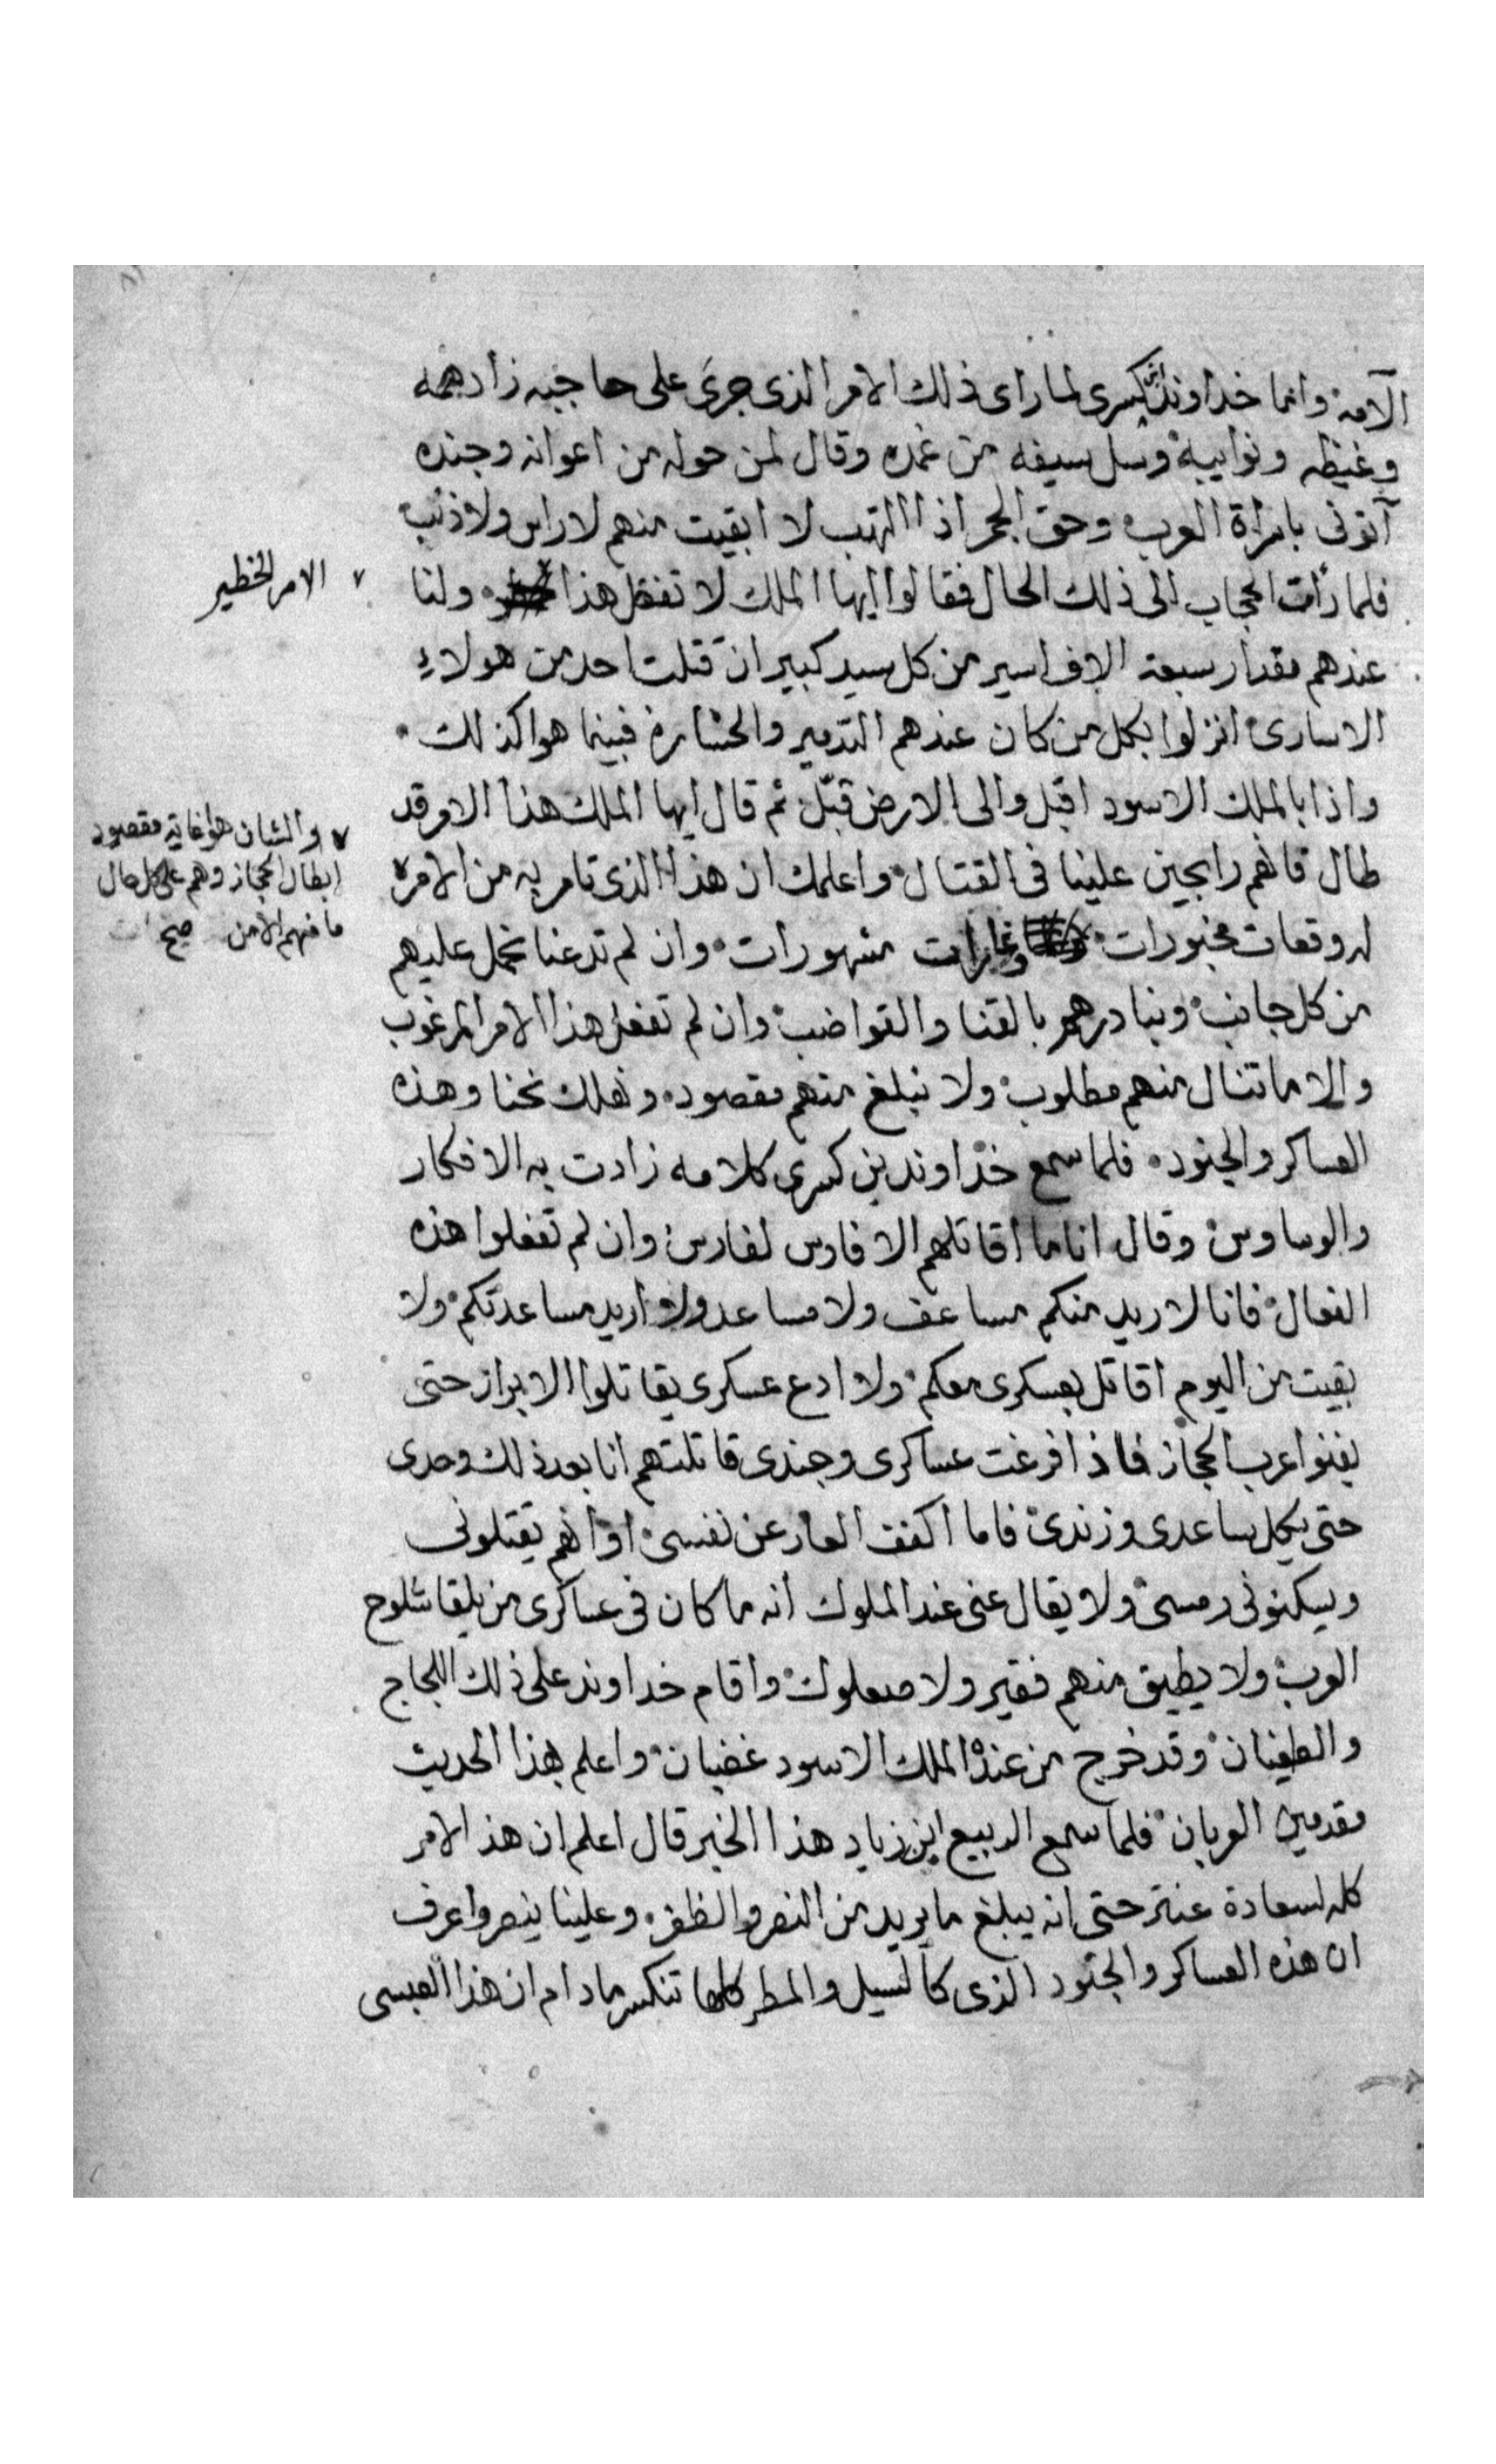 الآمه وانما خداوند ابن كسرى لما راى ذلك الامر الذى جرى على حاجبه زاد همه
وغيظه ونوايبه وسل سيفه من غمده وقال لمن حوله من اعوانه وجنده
آتونى بامراة العرب وحق الجمر اذا التهب لا ابقيت منهم لا راس ولا ذنب
فلما رأت الحجاب الى ذلك الحال فقالوا ايها الملك لا تفعل هذا ولنا
الامر الخطير
عندهم مقدار سبعة الاف اسير من كل سيد كبير ان قتلت احد من هولاء
الاسارى انزلوا بكل من كان عندهم التدمير والخساره فبينما هوا كذلك
واذا بالملك الاسود اقبل والى الارض قبّل ثم قال ايها الملك هذا الامر قد
طال فانهم رابحين علينا فى القتال واعلمك ان هذا الذى تامر به من الامر
والشان هوا غاية مقصود
ابطال الحجاز وهم على كل حال
ما فيهم الا من صح
له وقعات مخبورات وغارات مشهورات وان لم تدعنا نحمل عليهم
من كل جانب ونبادرهم بالقنا والقواضب وان لم تفعل هذا الامر المرغوب
والا ما تنال منهم مطلوب ولا نبلغ منهم مقصود ونهلك نحنا وهذه
العساكر والجنود فلما سمع خداوند بن كسرى كلامه زادت به الافكار
والوساوس وقال انا ما اقاتلهم الا فارس لفارس وان لم تفعلوا هذه
الفعال فانا لا ريد منكم مساعف ولا مساعد ولا اريد مساعدتكم ولا
بقيت من اليوم اقاتل بعسكرى معكم ولا ادع عسكرى يقاتلوا الا براز حتى
يفنوا عرب الحجاز فاذا فرغت عساكرى وجندى قاتلتهم انا بعد ذلك وحدى
حتى يكل ساعدى وزندى فاما اكفف العار عن نفسى او انهم يقتلونى
ويسكنونى رمسى ولا يقال عنى عند الملوك انه ما كان فى عساكرى من يلقا شلوح
العرب ولا يطيق منهم فقير ولا صعلوك واقام خداوند على ذلك اللجاج
والطغيان وقد خرج من عنده الملك الاسود غضبان واعلم بهذا الحديث
مقدمين العربان فلما سمع الربيع ابن زياد هذا الخبر قال اعلم ان هذ الامر
كله لسعادة عنتر حتى انه يبلغ ما يريد من النصر والظفر وعلينا ينصر واعرف
ان هذه العساكر والجنود الذى كالسيل والمطر كلها تنكسر مادام ان هذا العبسى